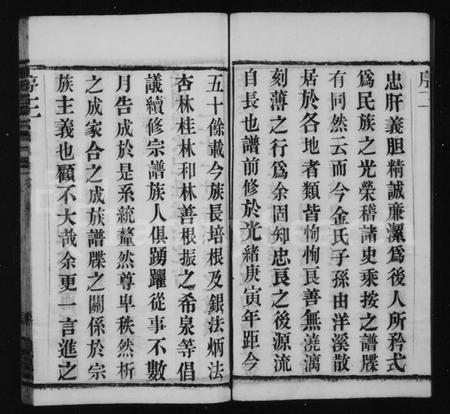 序二
忠肝義胆精誠廉潔爲後人所矜式
爲民族之光榮稽諸史乘按之譜牒
有同然云而今金氏子孫由洋溪散
居於各地者類皆恂恂良善無澆漓
刻薄之行爲余固知忠良之後源流
自長也譜前修於光緒庚寅年距今
五十餘載今族長培根及銀法炳法
杏林桂林和林善根振之希泉等倡
議續修宗譜族人俱踴躍從事不數
月告成於是系統釐然尊卑秩然析
之成家合之成族譜牒之關係於宗
族主義也顧不大哉余更一言進之
序